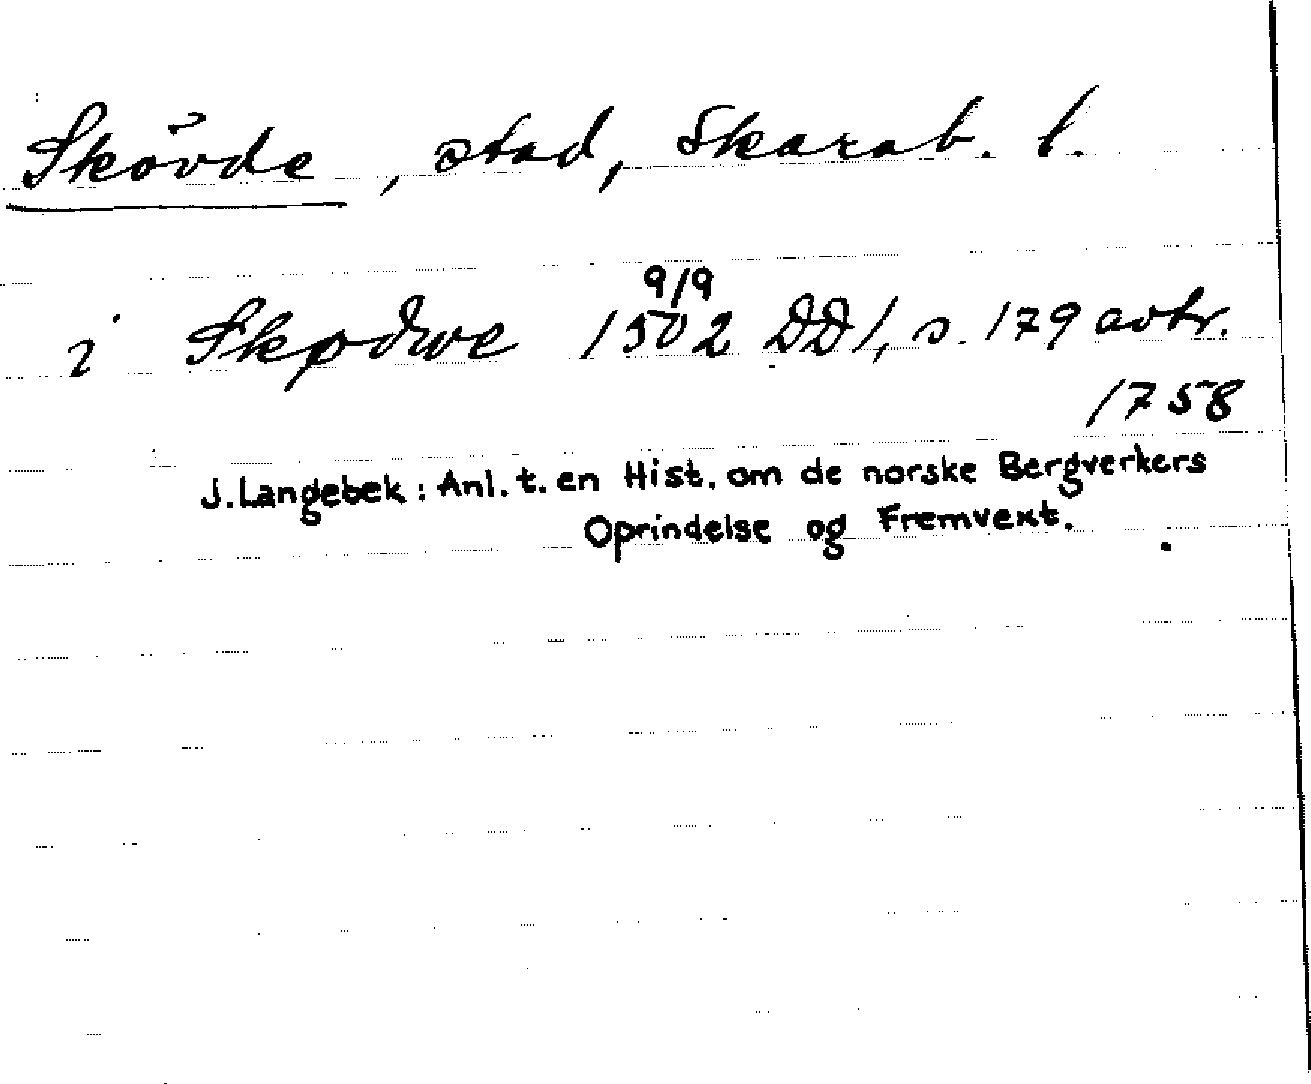 Skövde, stad, Skarab. l.
i Skødwe 9/9 1502 DD1, s. 179 avtr.
1758
J. Langebek: Anl. t. en Hist. om de norske Bergverkers
Oprindelse og Fremvext.